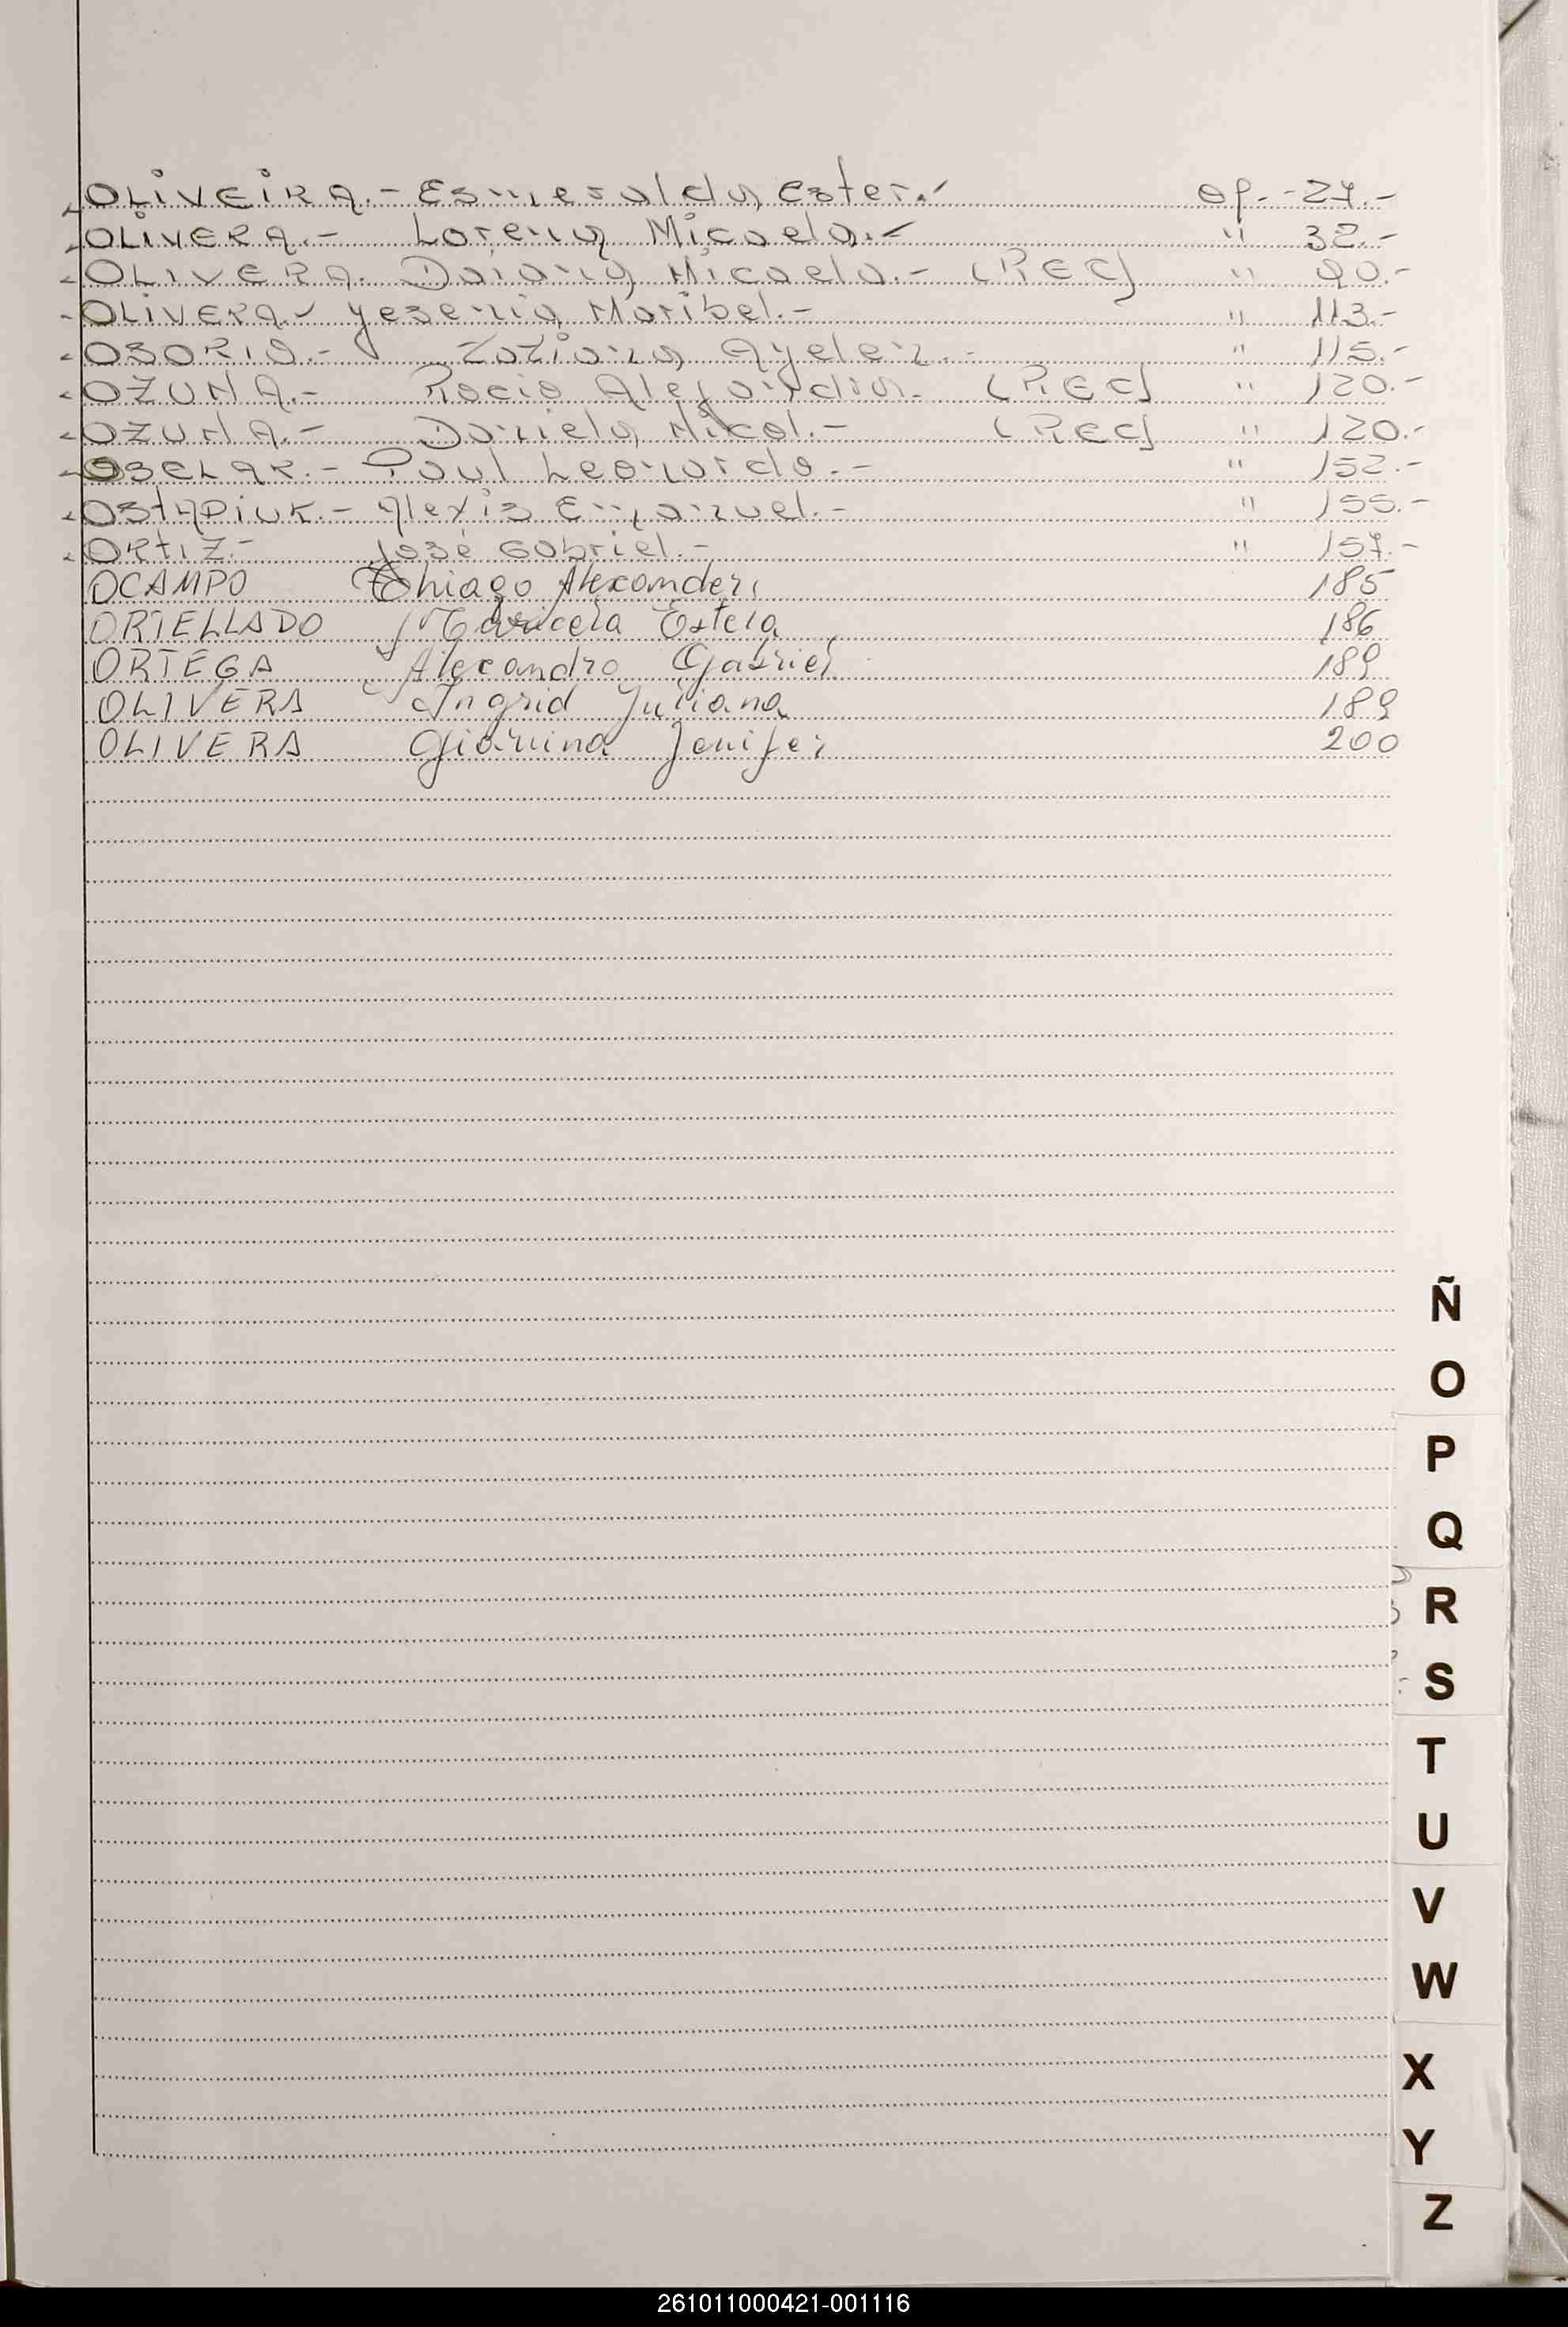 OLIVEIRA.- Esmeralda, Ester.- Of.- 27.-
OLIVERA.- Lorena Micaela.- " 32.-
OLIVERA. Daiana Micaela.- (REC) " 90.-
OLIVERA.- Yesenia Maribel.- " 113.-
OSORIO.- Tatiana Ayelen.- " 115.-
OZUNA.- Rocio Alejandra. (REC) " 120.-
OZUNA.- Daniela Nicol.- (REC) " 120.-
OBELAR.- Paul Leonardo.- " 152.-
OSTAPIUK.- Alexis Emanuel.- " 155.-
ORTIZ.- José Gabriel.- " 157.-
OCAMPO Thiago Alexander 185
ORTELLADO Maricela Estela 186
ORTEGA Alexandro Gabriel 189
OLIVERA Ingrid Juliana 189
OLIVERA Giannina Jenifer 200
Ñ
O
P
Q
R
S
T
U
V
W
X
Y
Z
261011000421-001116